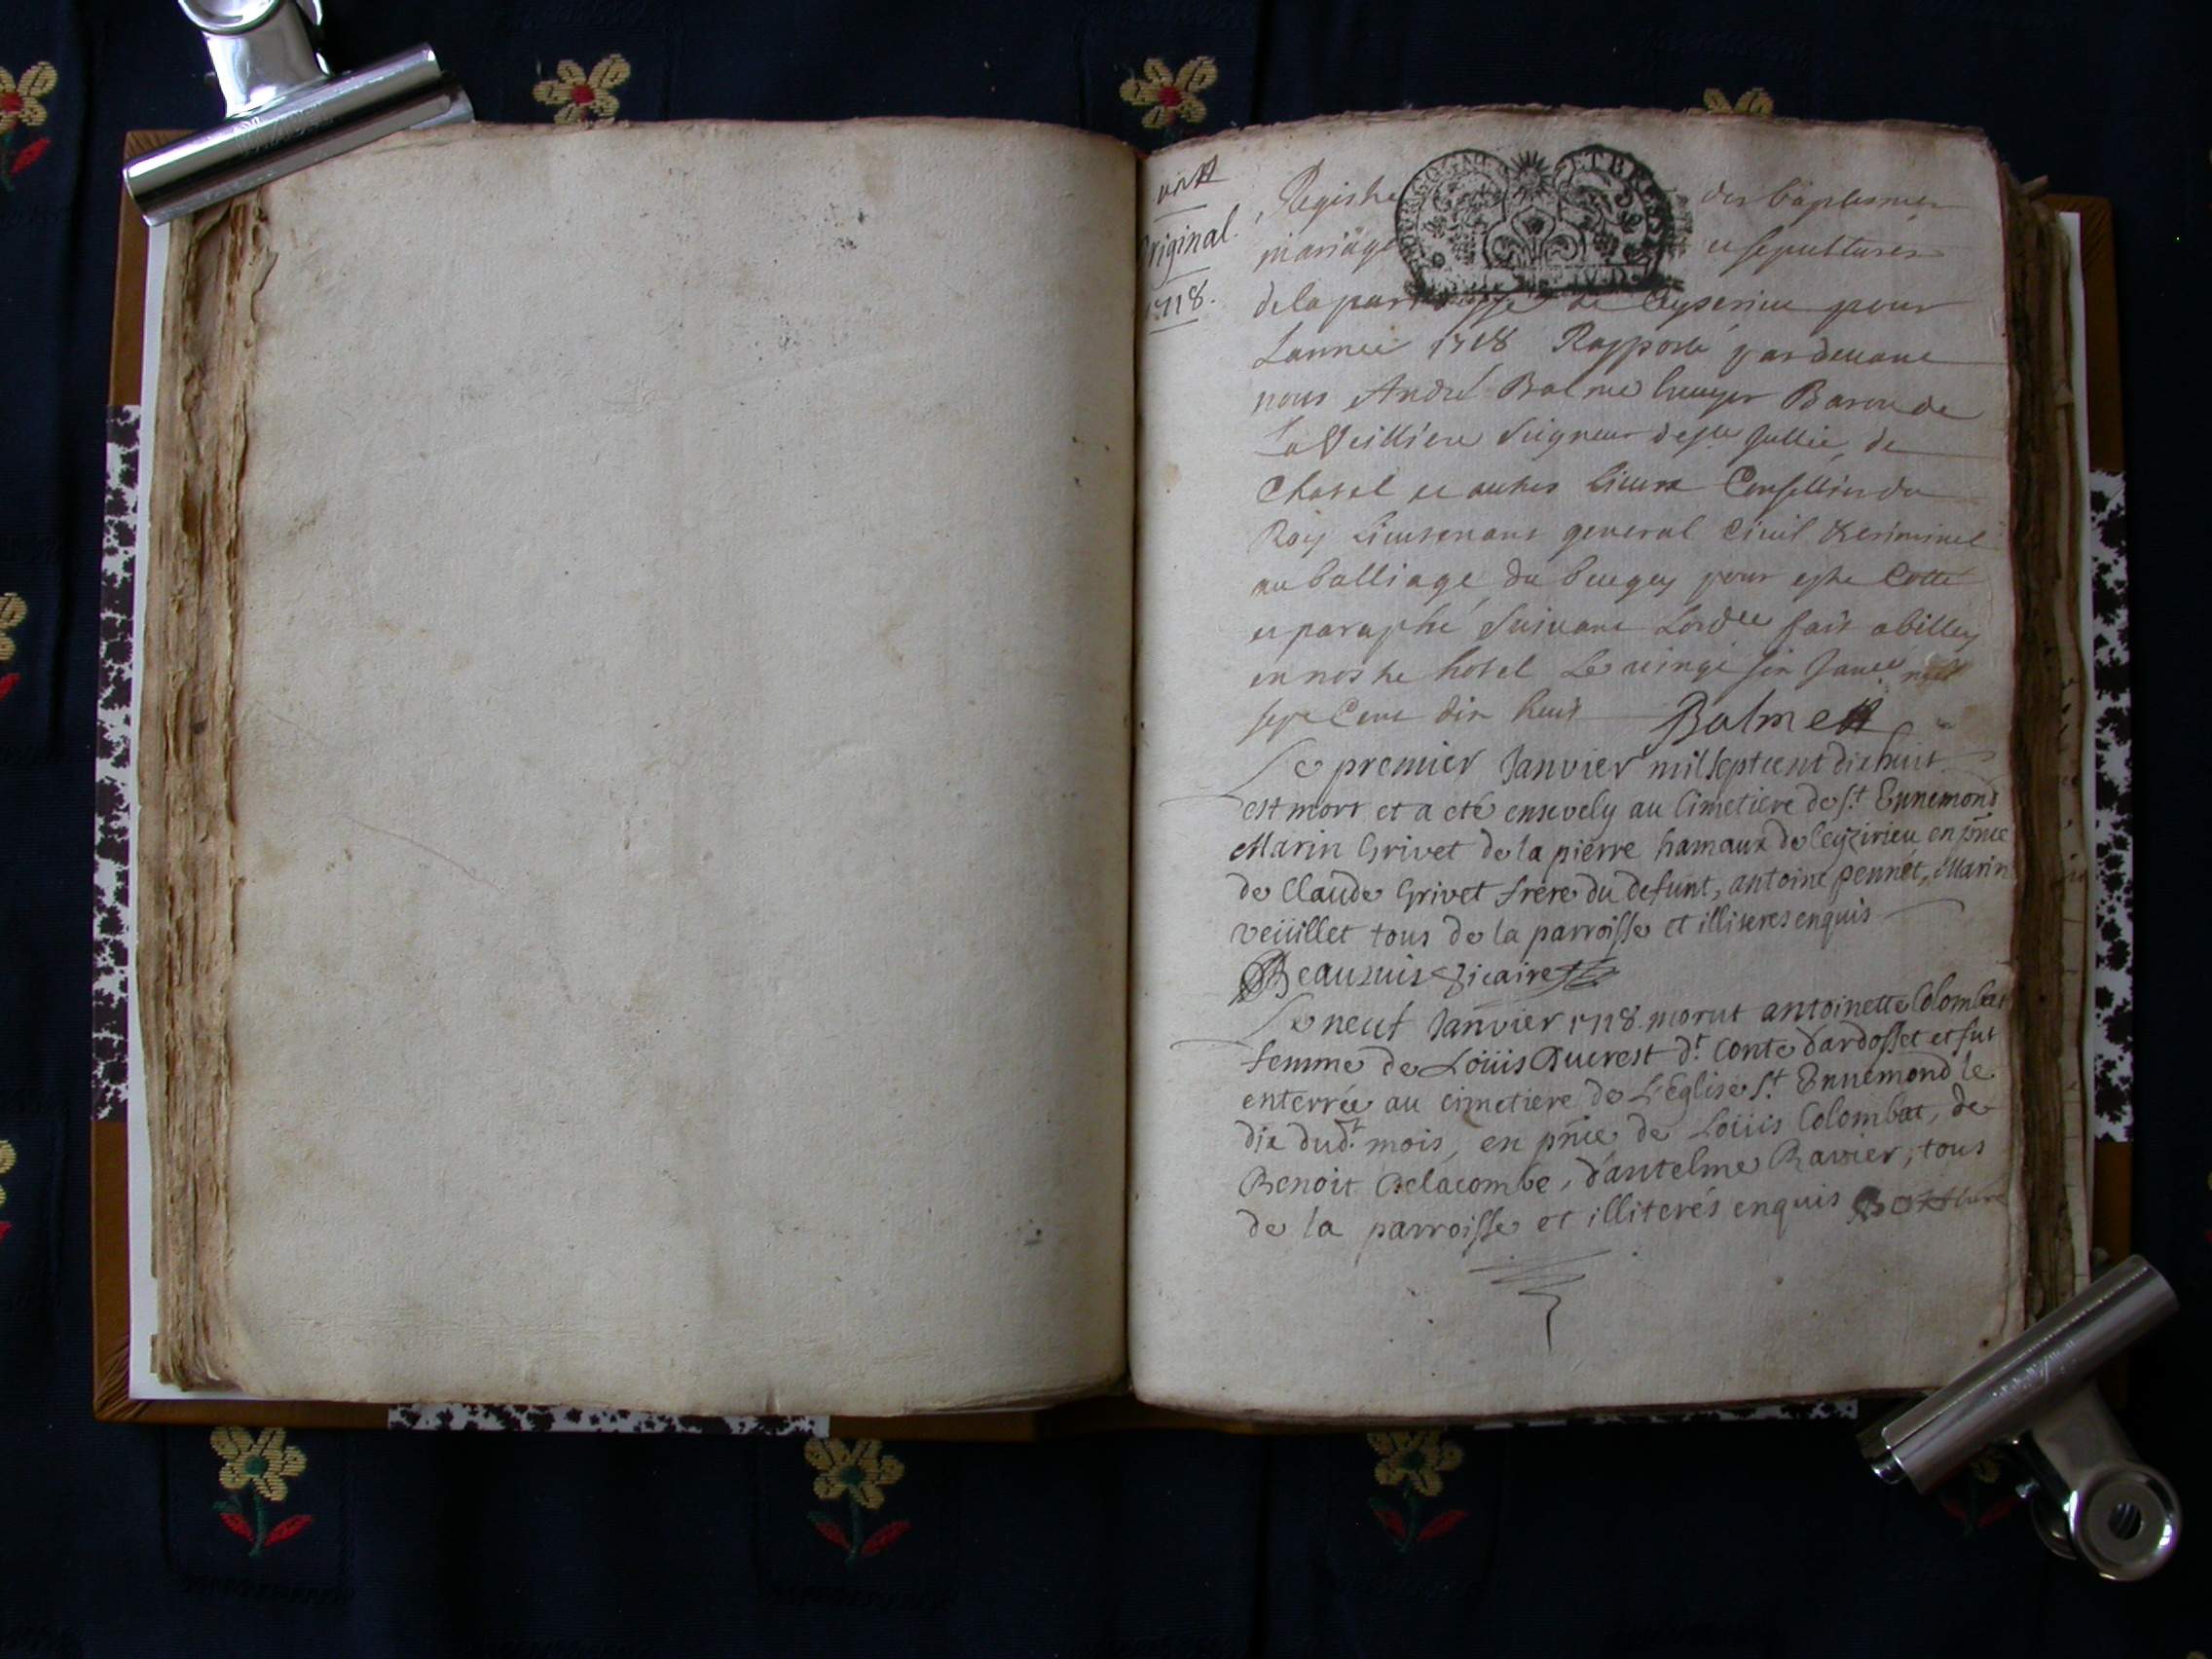 Original.
1718.
Registre des baptesmes
mariage et sepultures
de la parroisse de Ceyserieu pour
Lannee 1718 Rapporté pardevant
nous André Balme Baron de
Seigneur de Ste Jullie, de
Chatel et autres lieux Conseiller du
Roy Lieutenant general Civil & criminel
au balliage du bugey pour estre Cotté
et paraphé suivant Lordce fait a belley
en nostre hotel Le vingt six Janer mil
sept Cent dix huit Balme
Le premier Janvier mil sept cent dix huit
est mort et a eté ensevely au Cimetiere de St. Ennemond
Marin Grivet de la pierre hamaux de Ceyzirieu en pnce
de Claude Grivet frere du defunt, antoine pennet, Marin
veüillet tous de la parroisse et illiteres enquis
Vicaire
Le neuf Janvier 1718. morut antoinette Colombat
femme de Loüis Ducrest dt. Conte dardosset et fut
enterrée au cimetiere de L'Eglise St. Ennemond le
dix dud.t mois, en pnce de Loüis Colombat, de
Benoit Delacombe, d'antelme Ravier, tous
de la parroisse et illiterés enquis